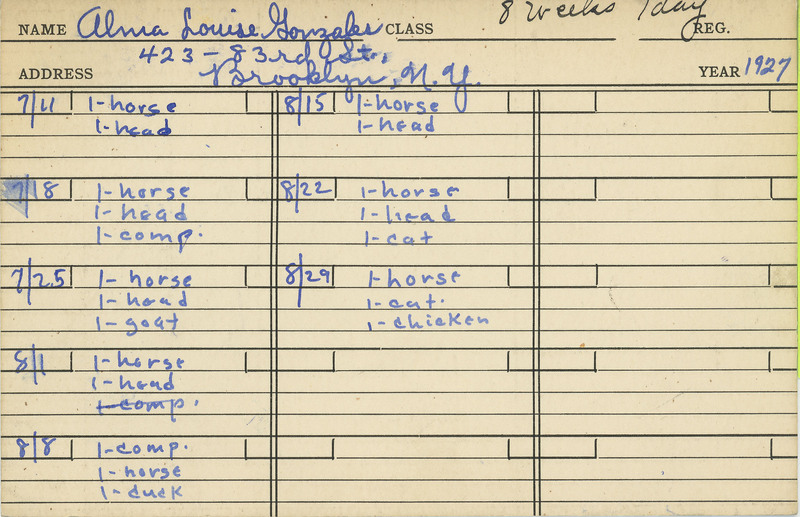 8 weeks 1 day
NAME Alma Louise Gonzales CLASS REG.
423 - 83rd St.,
ADDRESS Brooklyn, N.Y. YEAR 1927
7/11 1-horse
1-head
7/18 1-horse
1-head
1-comp.
7/25 1-horse
1-head
1-goat
8/1 1-horse
1-head
1-comp.
8/8 1-comp.
1-horse
1-duck
8/15 1-horse
1-head
8/22 1-horse
1-head
1-cat
8/29 1-horse
1-cat.
1-chicken